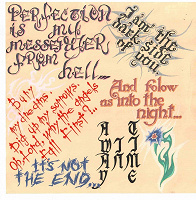 PERFECTION
is MY
MESSENGER
FROM
hell...
I am the
dark side
of you
And folow
us into the
night...
Bury
my
Dig up my sorrows,
Oh Lord, may the angels
Fall first...
AWAY
I AM
TIME
IT'S NOT
THE END...